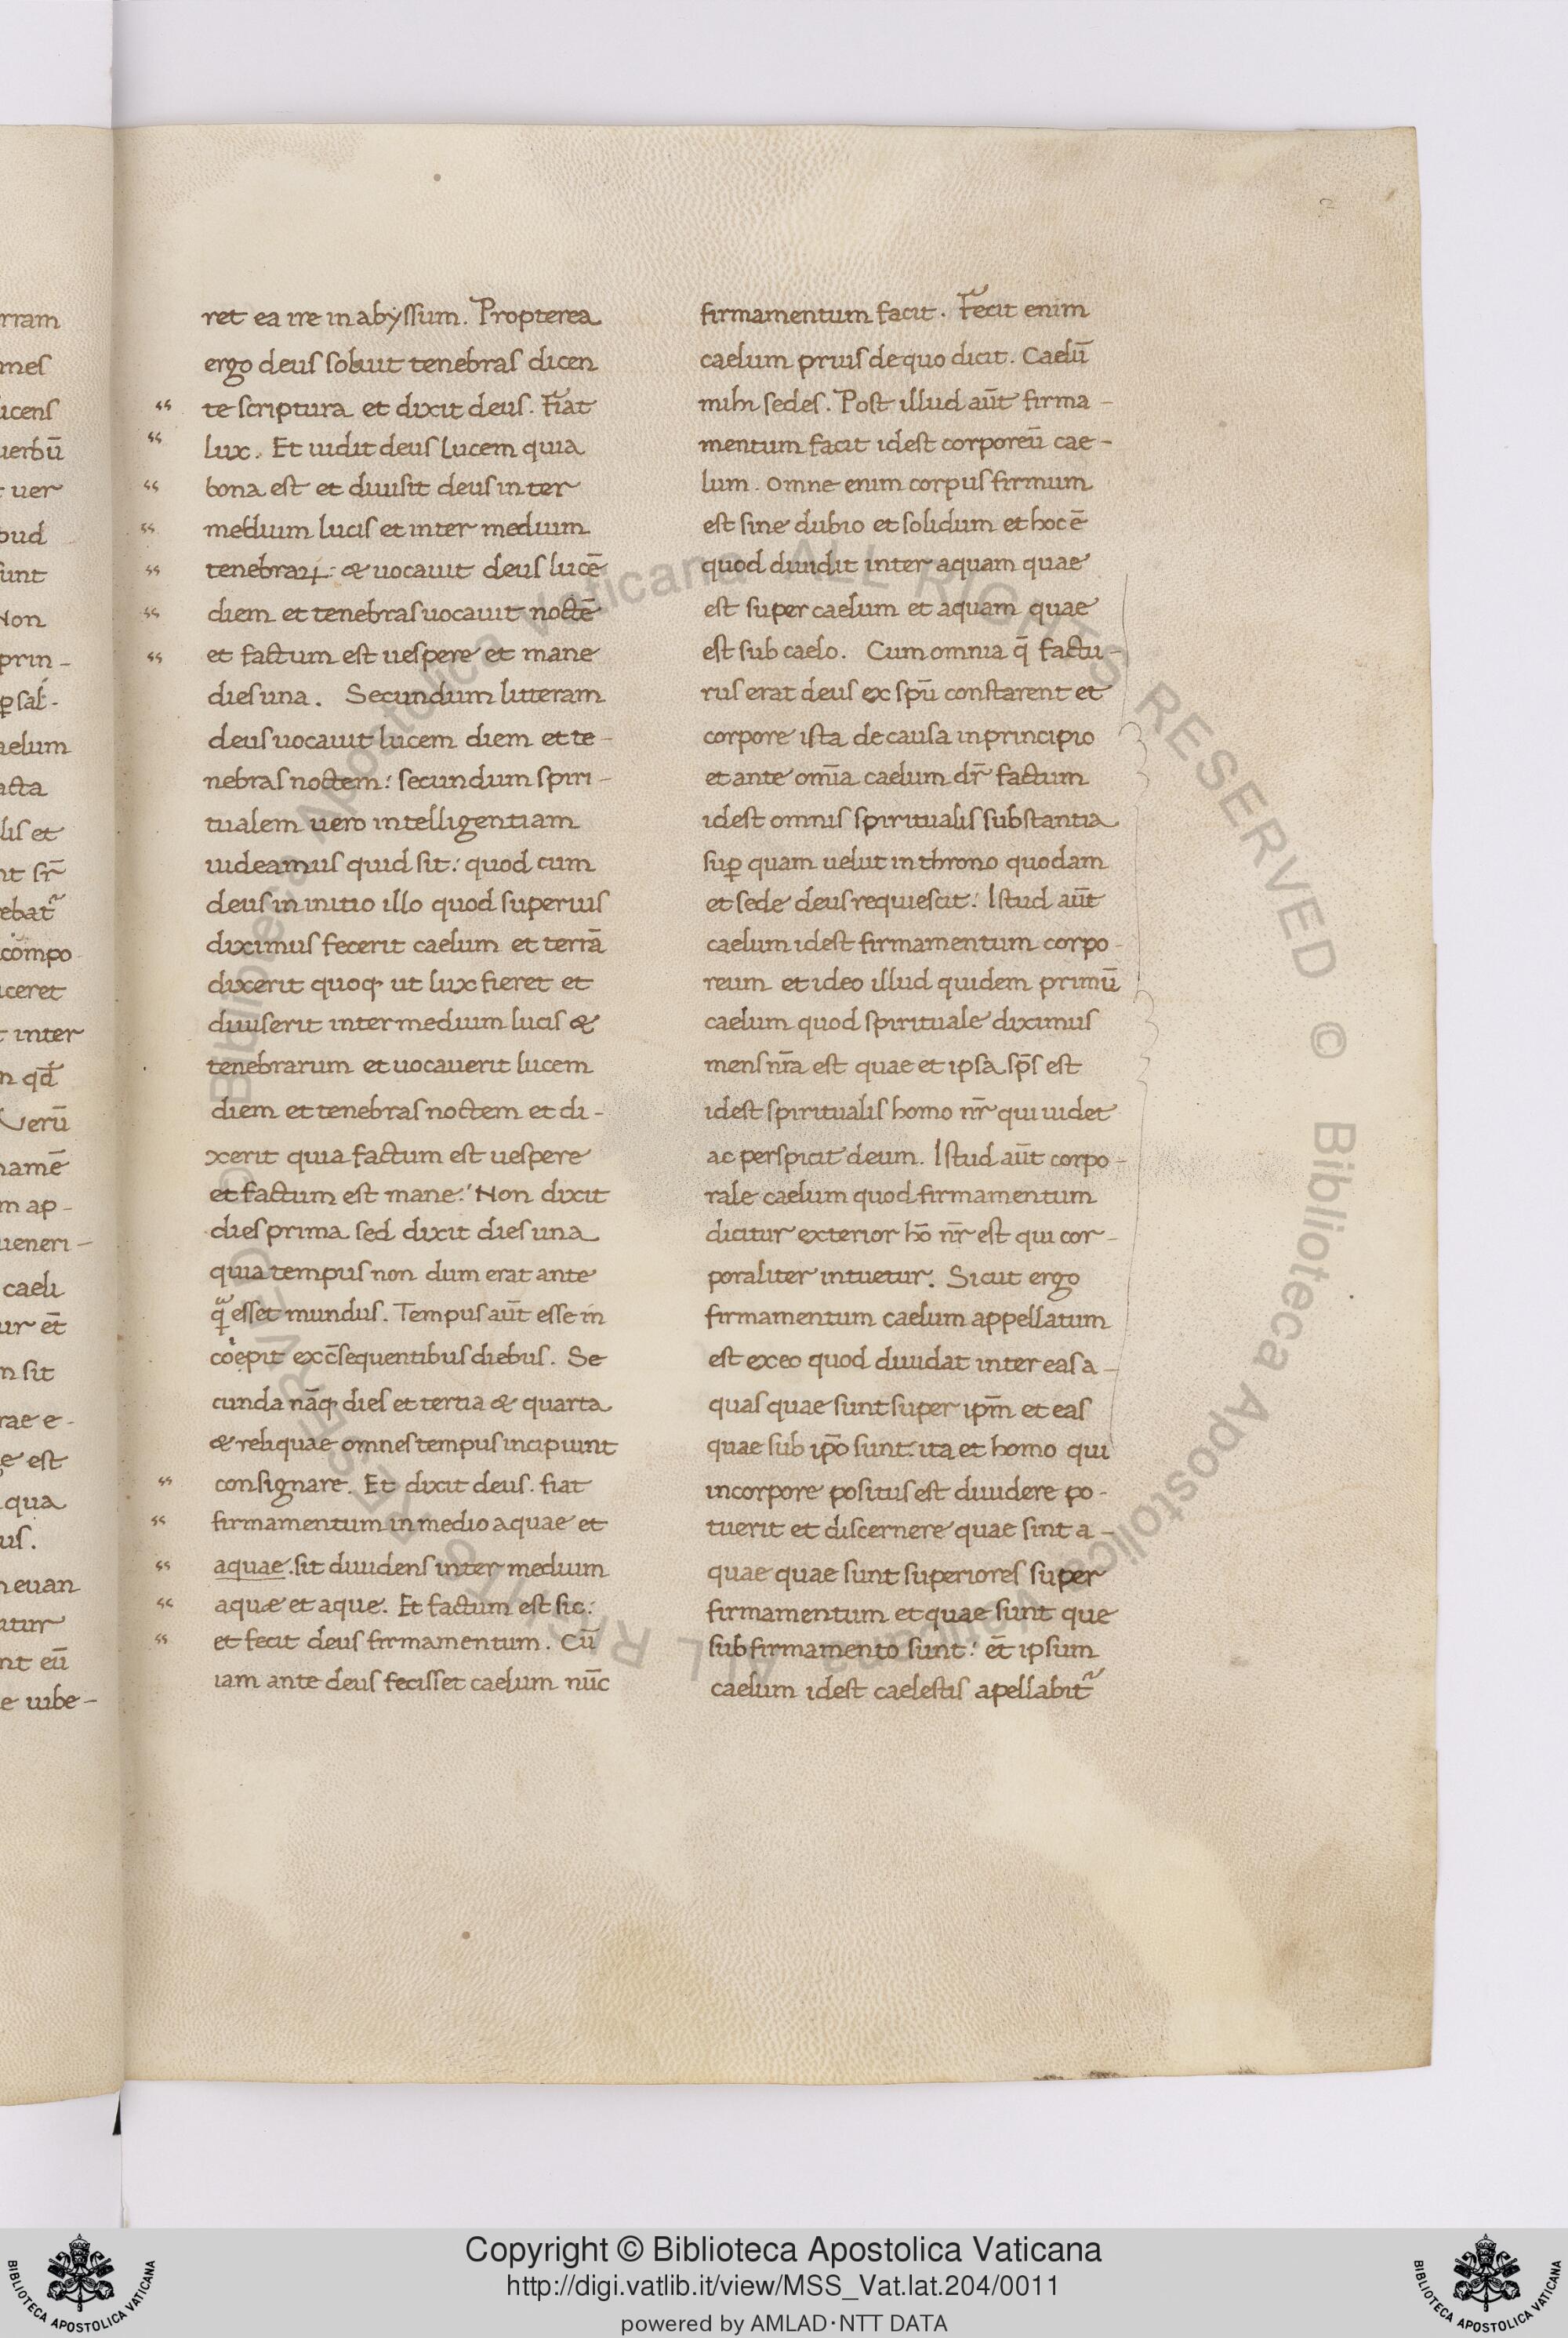 rram
mes
ucens
uerbū
t uer
pud
sunt
Non
prin-
ꝑ sal-
aelum
acta
lis et
nt sr̄
ebat᷑
compo
uceret
t inter
n qd̄
Verū
namē
m ap-
ueneri-
caeli
ur et̄
n sit
rae e-
e est
qua
us.
n euan
atur
nt eū
e uibe-
ret ea ire in abyssum. Propterea
ergo deus soluit tenebras dicen
“ te scriptura et dixit deus. Fiat
“ lux. Et uidit deus lucem quia
“ bona est et diuisit deus inter
“ medium lucis et inter medium
“ tenebraꝝ: & uocauit deus lucē
“ diem et tenebras uocauit noctē
“ et factum est uespere et mane
dies una. Secundum litteram
deus uocauit lucem diem et te-
nebras noctem: secundum spiri-
tualem uero intelligentiam
uideamus quid sit: quod cum
deus in initio illo quod superius
diximus fecerit caelum et terrā
dixerit quoq; ut lux fieret et
diuiserit inter medium lucis &
tenebrarum et uocauerit lucem
diem et tenebras noctem et di-
xerit quia factum est uespere
et factum est mane: Non dixit
dies prima sed dixit dies una
quia tempus non dum erat ante
qᷓ esset mundus. Tempus aūt esse in
coepit ex c̄sequentibus diebus. Se
cunda nāq; dies et tertia & quarta
& reliquae omnes tempus incipiunt
“ consignare. Et dixit deus. fiat
“ firmamentum in medio aquae et
“ aquae. sit diuidens inter medium
“ aquæ et aque. Et factum est sic:
“ et fecit deus firmamentum. Cū
iam ante deus fecisset caelum nūc
2
firmamentum facit. Fecit enim
caelum prius de quo dicit. Caelū
mihi sedes. Post illud aūt firma-
mentum facit idest corporeū cae-
lum. Omne enim corpus firmum
est sine dubio et solidum et hoc ē
quod diuidit inter aquam quae
est super caelum et aquam quae
est sub caelo. Cum omnia q̄ factu-
rus erat deus ex spū constarent et
corpore ista de causa in principio
et ante om̄ia caelum dr̄ factum
idest omnis spiritualis substantia
suꝑ quam uelut in throno quodam
et sede deus requiescit: Istud aūt
caelum idest firmamentum corpo-
reum et ideo illud quidem primū
caelum quod spirituale diximus
mens nr̄a est quae et ipsa sp̄s est
idest spiritualis homo nr̄ qui uidet
ac perspicit deum. Istud aūt corpo-
rale caelum quod firmamentum
dicitur exterior hō nr̄ est qui cor-
poraliter intuetur. Sicut ergo
firmamentum caelum appellatum
est ex eo quod diuidat inter eas a-
quas quae sunt super ipm̄ et eas
quae sub ipō sunt: ita et homo qui
in corpore positus est diuidere po-
tuerit et discernere quae sint a-
quae quae sunt superiores super
firmamentum et quae sunt que
sub firmamento sunt: et̄ ipsum
caelum idest caelestis apellabit᷑
© Biblioteca Apostolica Vaticana ALL RIGHTS RESERVED © Biblioteca Apostolica Vaticana ALL RIGHTS RESERVED
Copyright © Biblioteca Apostolica Vaticana
http://digi.vatlib.it/view/MSS_Vat.lat.204/0011
powered by AMLAD·NTT DATA
BIBLIOTECA APOSTOLICA VATICANA
BIBLIOTECA APOSTOLICA VATICANA